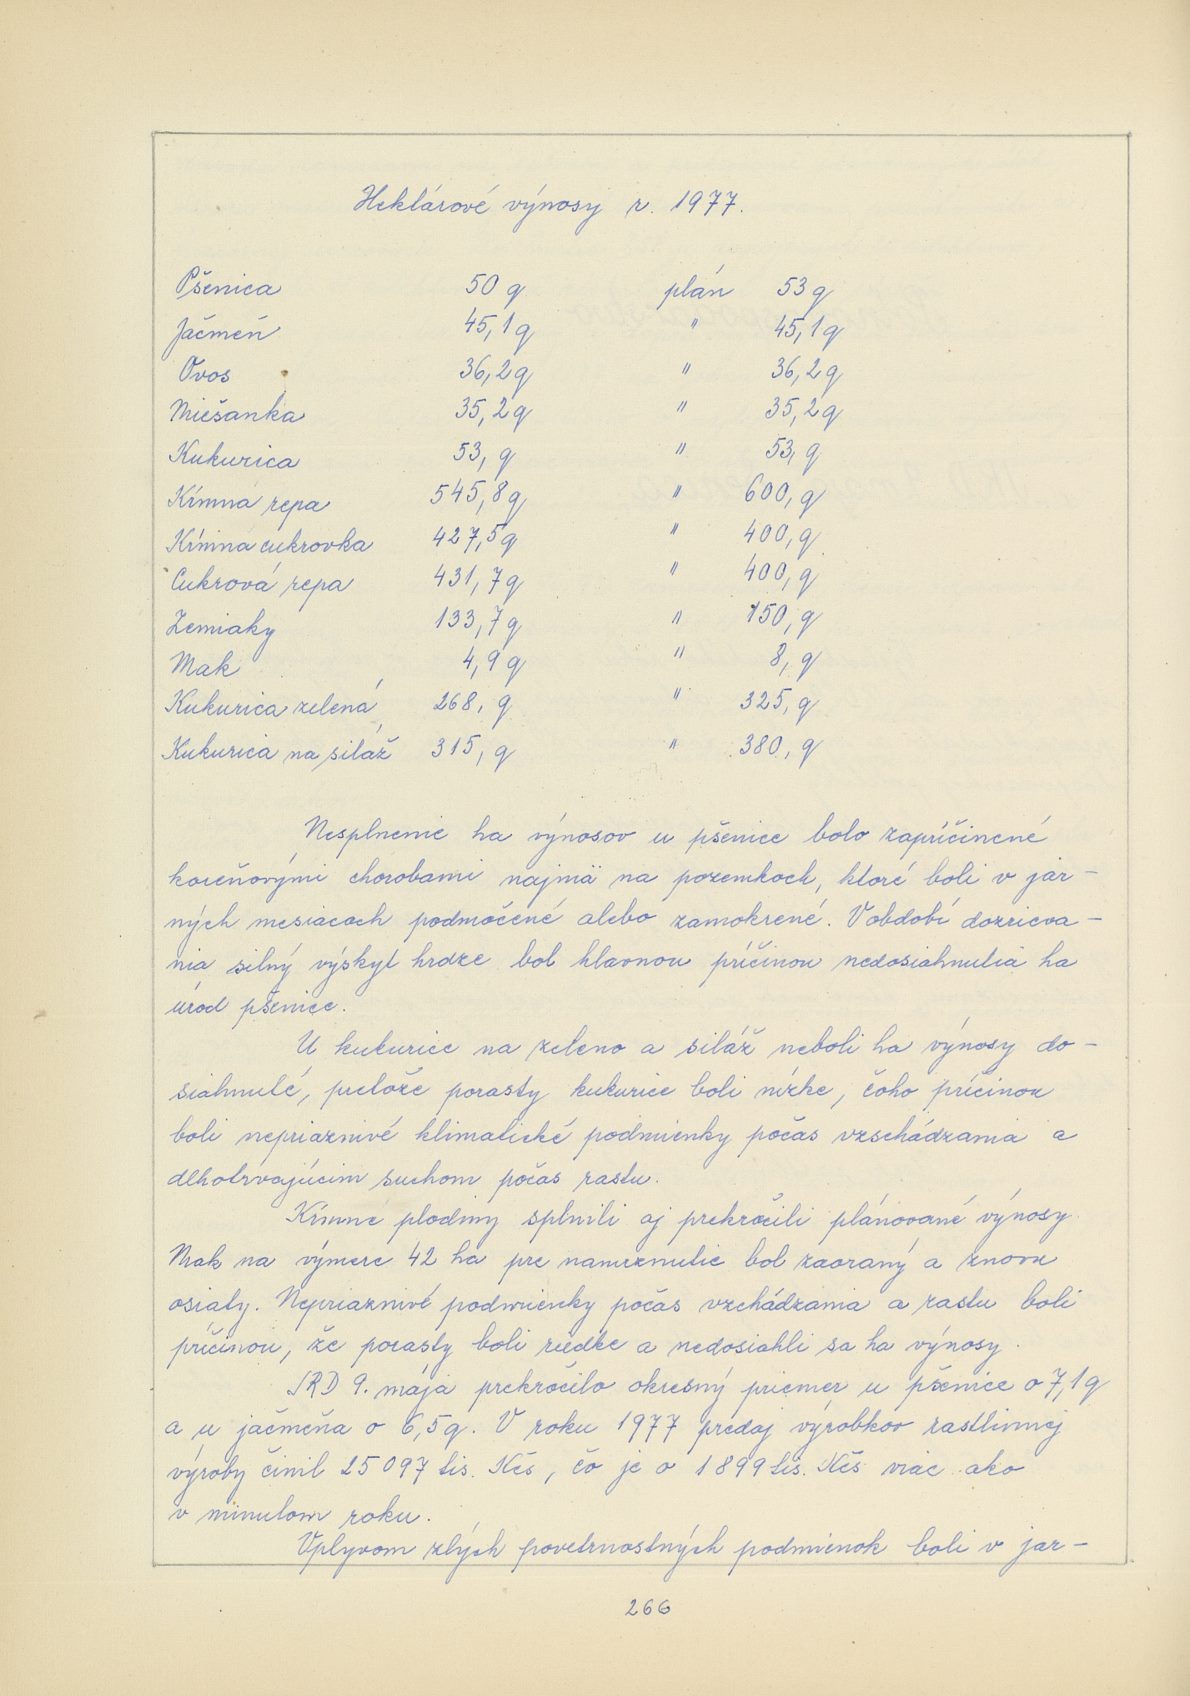 Hektárové výnosy r. 1977.
Pšenica 50 q plán 53 q
Jačmeň 45,1 q " 45,1 q
Ovos 36,2 q " 36,2 q
Miešanka 35,2 q " 35,2 q
Kukurica 53, q " 53, q
Kŕmna repa 545,8 q " 600, q
Kŕmna cukrovka 427,5 q " 400, q
Cukrová repa 431,7 q " 400, q
Zemiaky 133,7 q " 150, q
Mak 4,9 q " 8, q
Kukurica zelená 268, q " 325, q
Kukurica na siláž 315, q " 380, q
Nesplnenie ha výnosov u pšenice bolo zapríčinené
koreňovými chorobami najmä na pozemkoch, ktoré boli v jar-
ných mesiacoch podmočené alebo zamokrené. V období dozrieva-
nia silný výskyt hrdze bol hlavnou príčinou nedosiahnutia ha
úrod pšenice.
U kukurice na zeleno a siláž neboli ha výnosy do-
siahnuté, pretože porasty kukurice boli nízke, čoho príčinou
boli nepriaznivé klimatické podmienky počas vzschádzania a
dlhotrvajúcim suchom počas rastu.
Kŕmne plodiny splnili aj prekročili plánované výnosy.
Mak na výmere 42 ha pre namrznutie bol zaoraný a znovu
osiaty. Nepriaznivé podmienky počas vzchádzania a rastu boli
príčinou, že porasty boli riedke a nedosiahli sa ha výnosy.
JRD 9. mája prekročilo okresný priemer u pšenice o 7,1 q
a u jačmeňa o 6,5 q. V roku 1977 predaj výrobkov rastlinnej
výroby činil 25 097 tis. Kčs, čo je o 1 899 tis. Kčs viac ako
v minulom roku.
Vplyvom zlých poveternostných podmienok boli v jar-
266